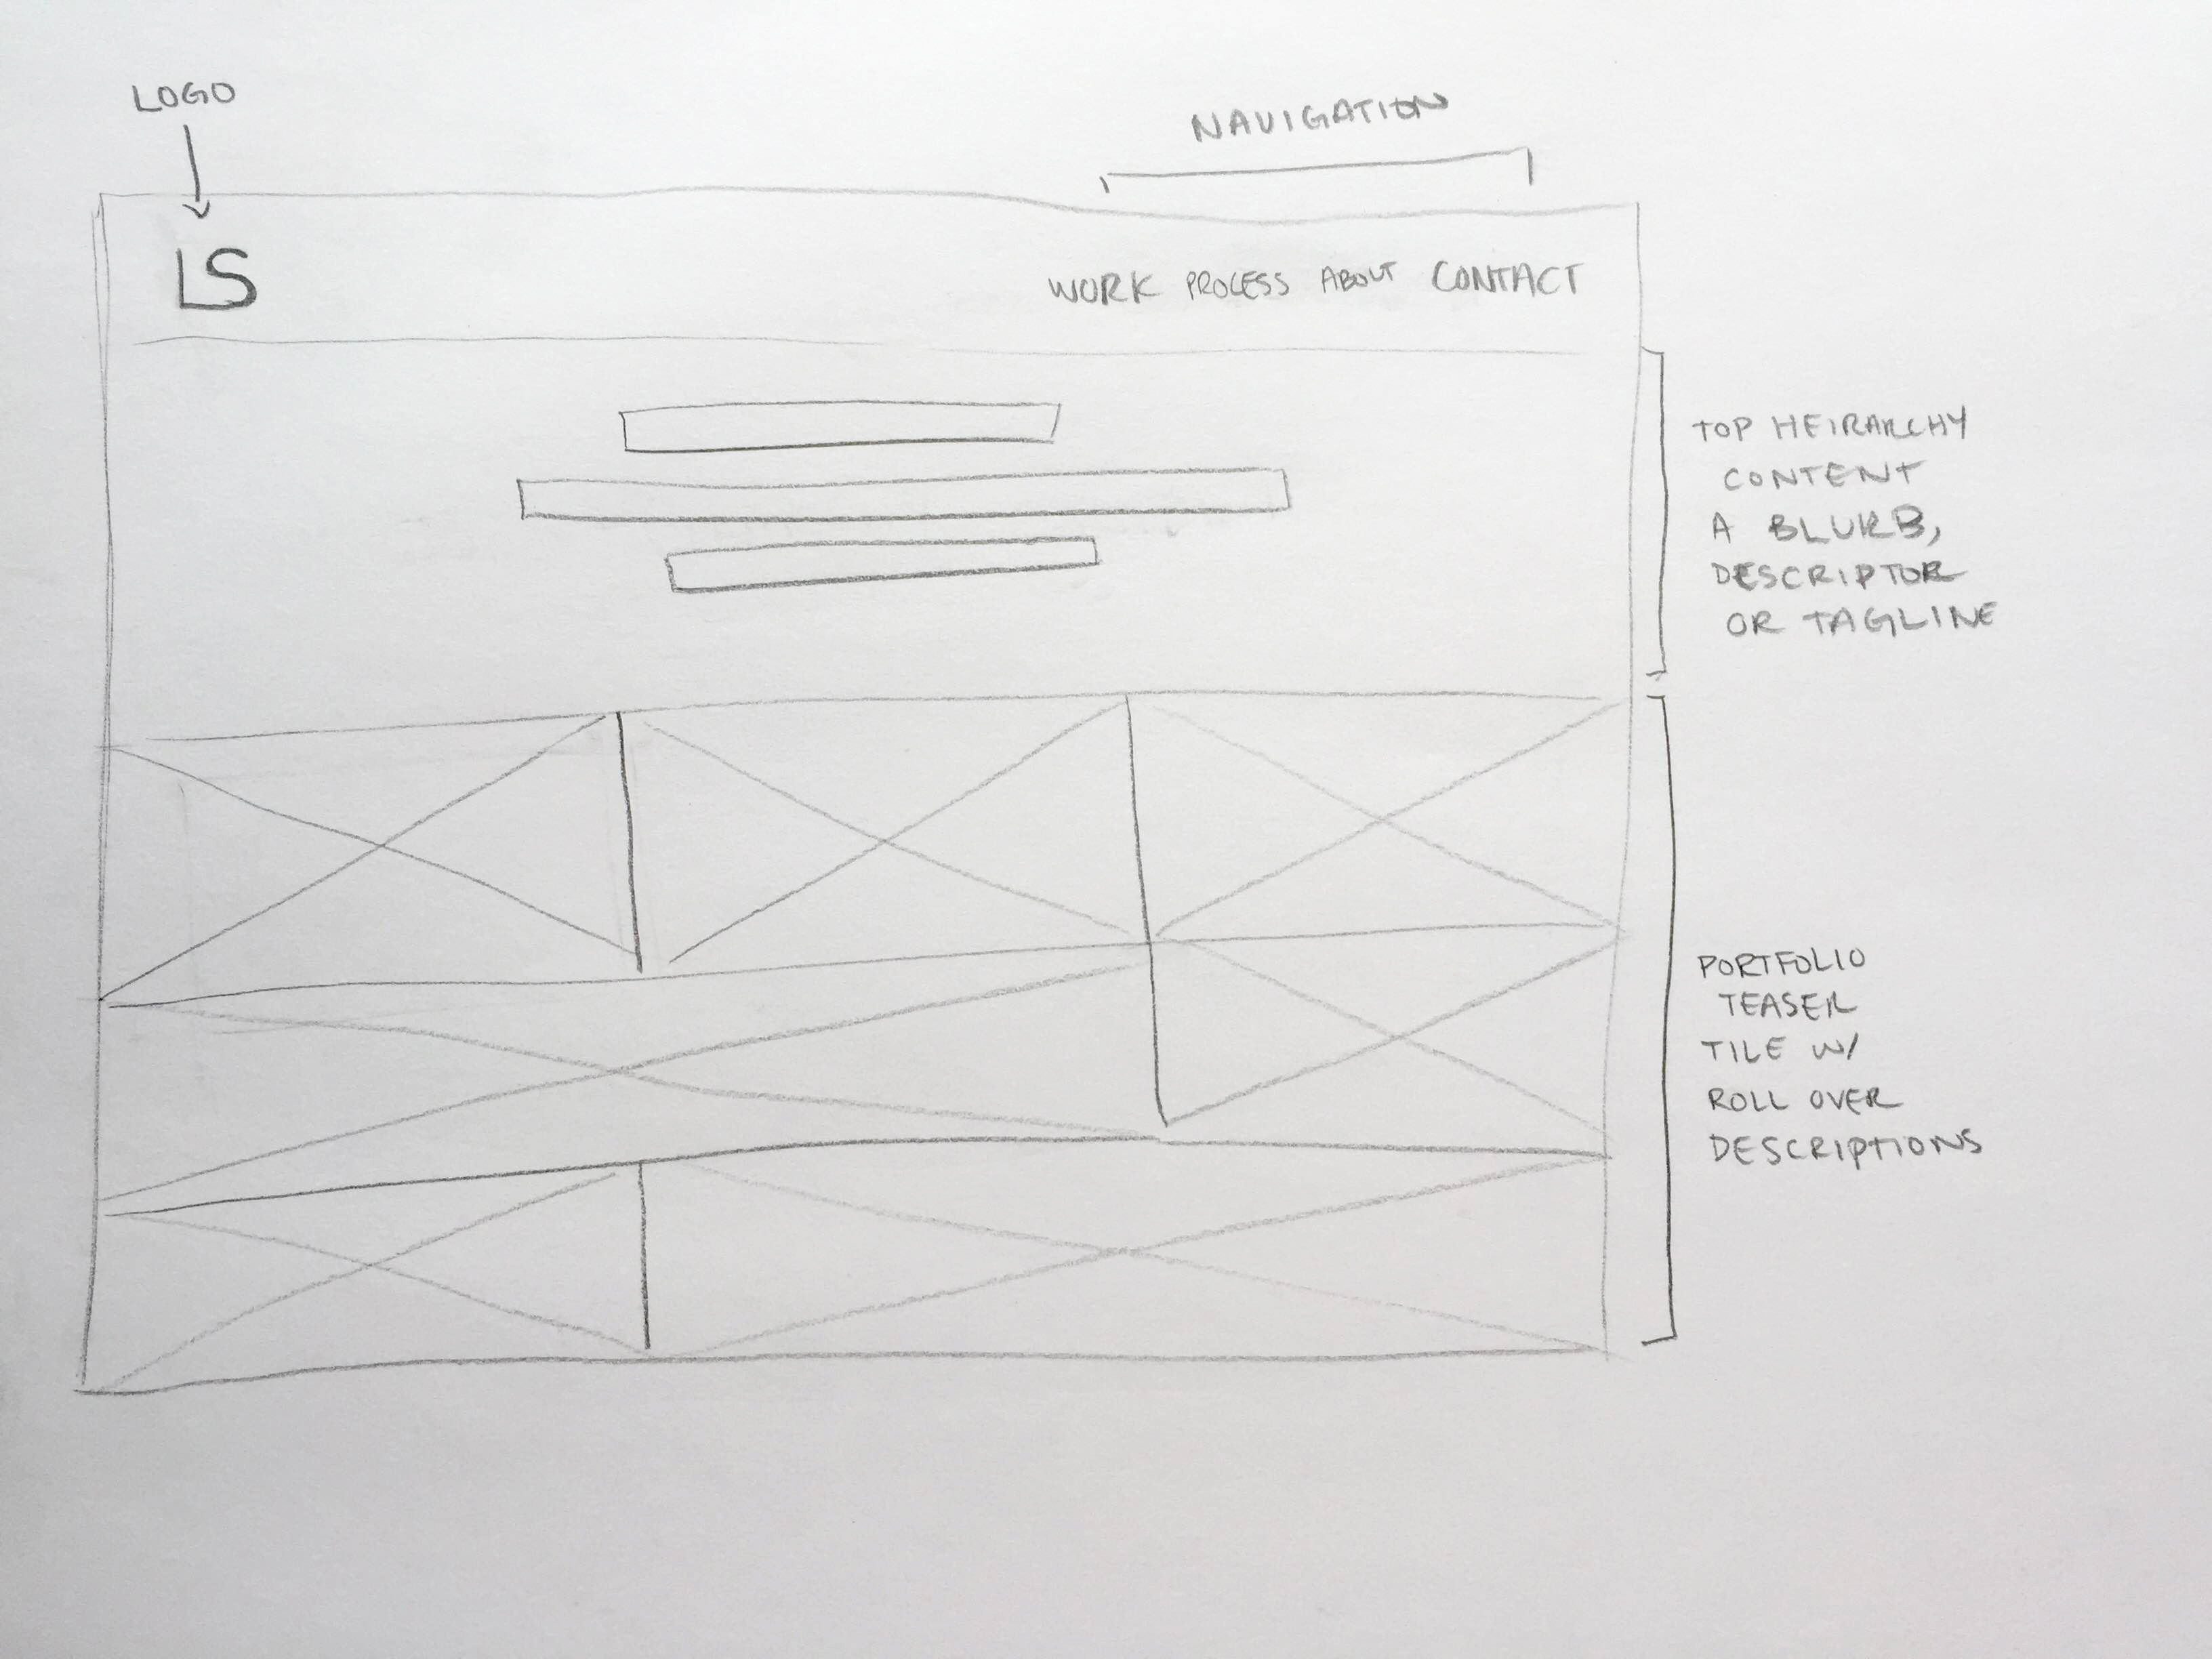 LOGO
NAVIGATION
LS
WORK PROCESS ABOUT CONTACT
TOP HEIRARCHY
CONTENT
A BLURB,
DESCRIPTOR
OR TAGLINE
PORTFOLIO
TEASER
TILE W/
ROLL OVER
DESCRIPTIONS